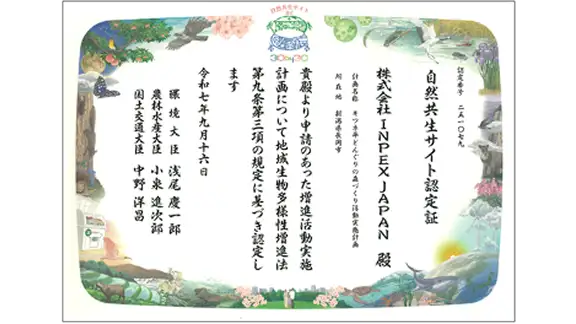 自然共生サイト
30by30
認定番号 二五一〇七九
自然共生サイト認定証
株式会社 INPEX JAPAN 殿
計画名称 キツネ平どんぐりの森づくり活動実施計画
所在地 新潟県長岡市
貴殿より申請のあった増進活動実施
計画について地域生物多様性増進法
第九条第三項の規定に基づき認定し
ます
令和七年九月十六日
環境大臣 浅尾 慶一郎
農林水産大臣 小泉 進次郎
国土交通大臣 中野 洋昌